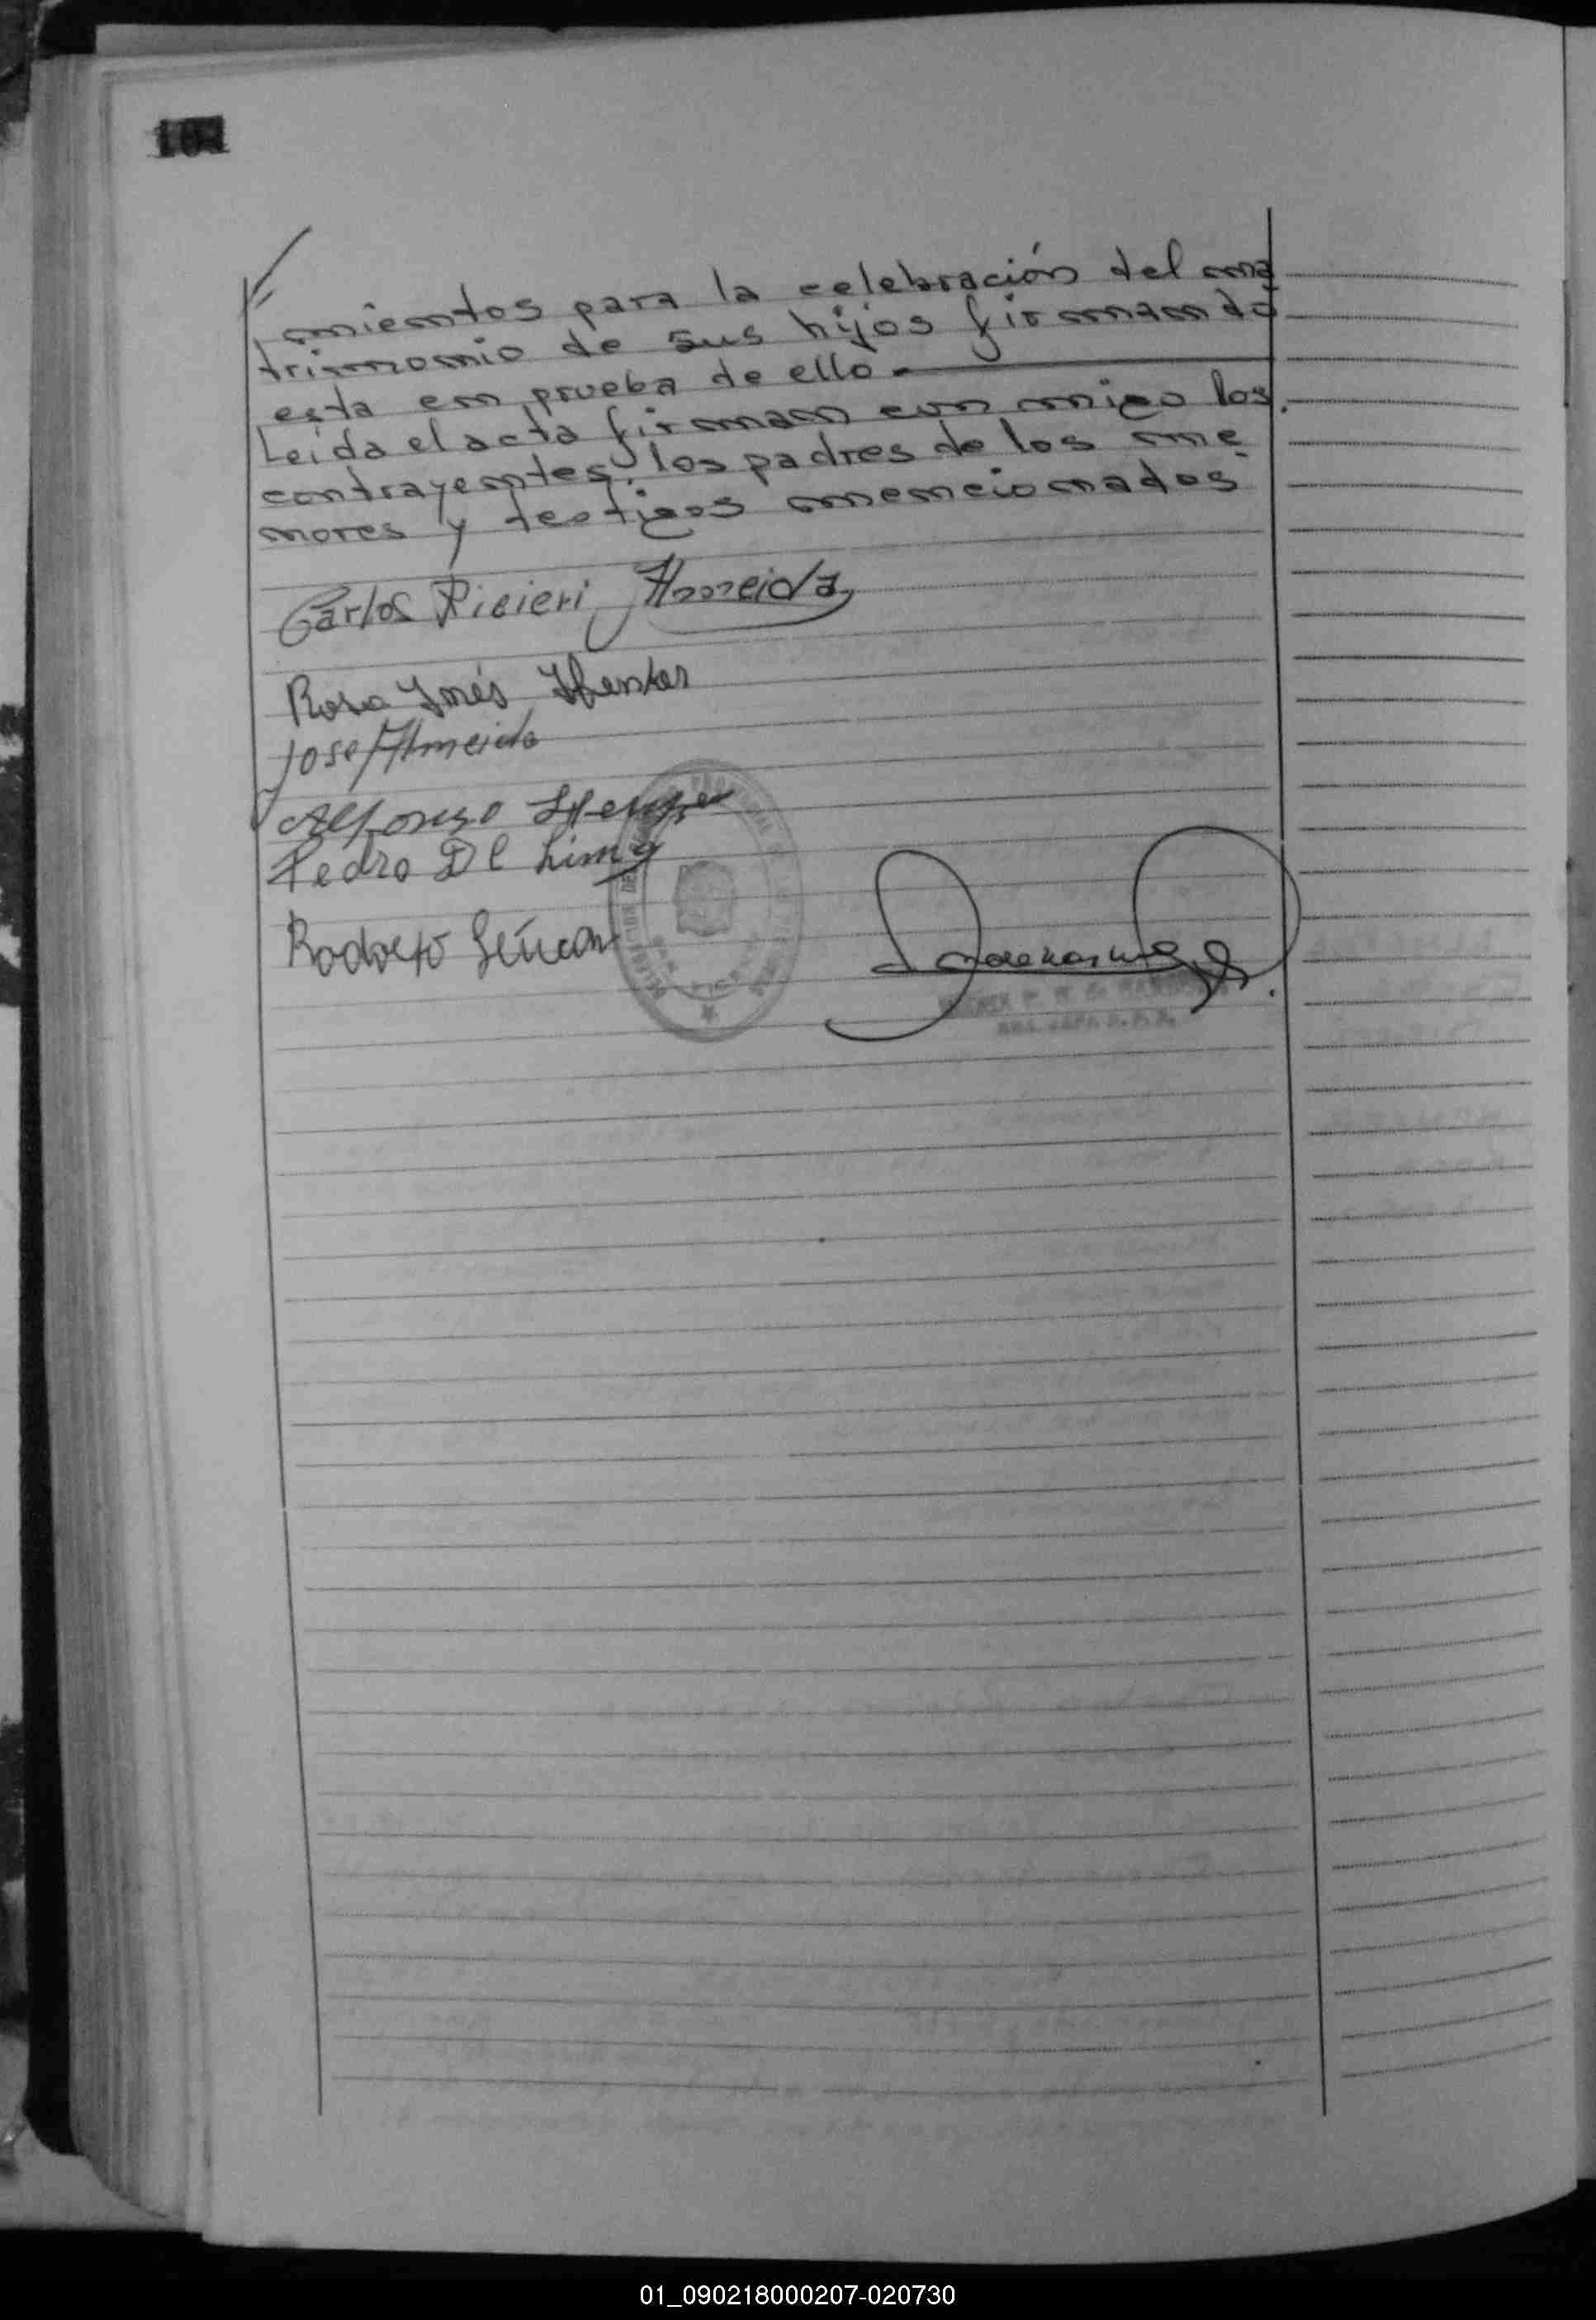 104
mientos para la celebración del ma
trimonio de sus hijos firmando
esta en prueba de ello.-
Leida el acta firman con migo los
contrayentes, los padres de los me
nores y testigos mencionados
Carlos Ricieri Almeida
Rosa Inés
Jose Almeida
Alfonso
Pedro De Lima
Rodolfo
01_090218000207-020730